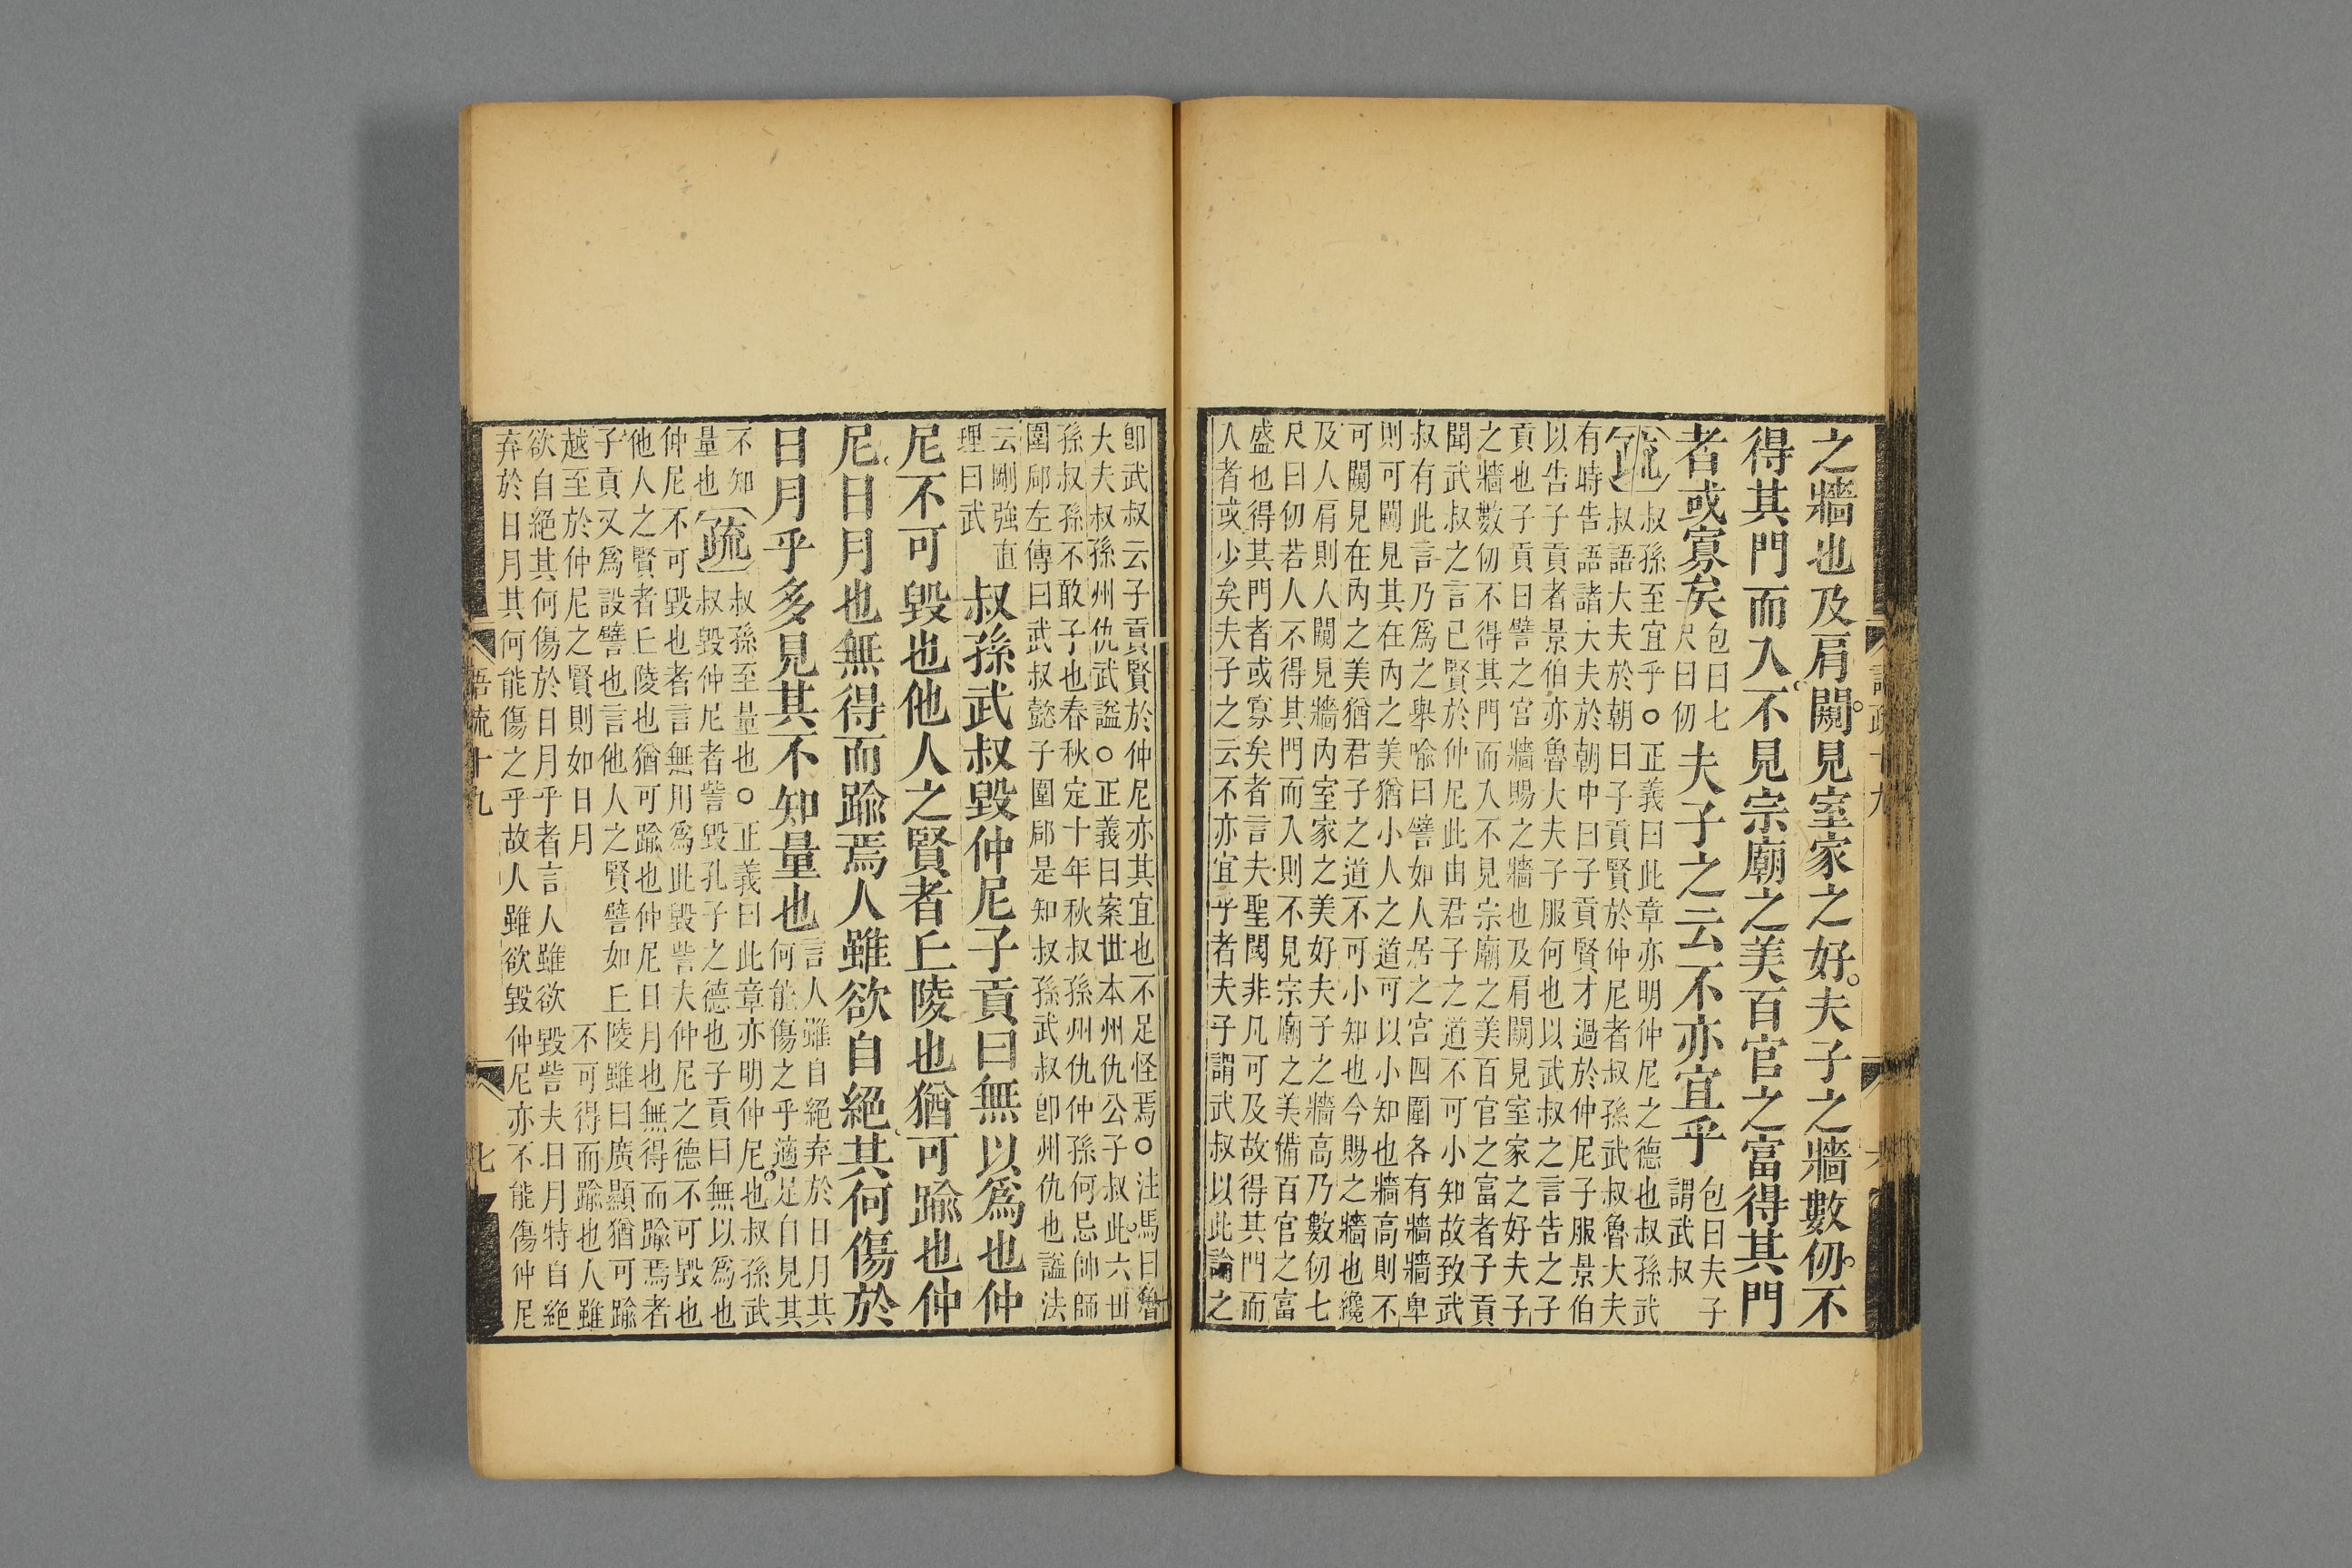 之牆也及肩闚見室家之好夫子之牆數仞不
得其門而入不見宗廟之美百官之富得其門
者或寡矣包曰七
尺曰仞夫子之云不亦宜乎包曰夫子
謂武叔
疏叔孫至宜乎○正義曰此章亦明仲尼之德也叔孫武
叔語大夫於朝曰子貢賢於仲尼者叔孫武叔魯大夫
有時告語諸大夫於朝中曰子貢賢才過於仲尼子服景伯
以告子貢者景伯亦魯大夫子服何也以武叔之言告之子
貢也子貢曰譬之宮牆賜之牆也及肩闚見室家之好夫子
之牆數仞不得其門而入不見宗廟之美百官之富者子貢
聞武叔之言已賢於仲尼此由君子之道不可小知故致武
叔有此言乃爲之舉喻曰譬如人居之宮四圍各有牆牆卑
則可闚見其在內之美猶小人之道可以小知也牆高則不
可闚見在內之美猶君子之道不可小知也今賜之牆也纔
及人肩則人闚見牆內室家之美好夫子之牆高乃數仞七
尺曰仞若人不得其門而入則不見宗廟之美備百官之富
盛也得其門者或寡矣者言夫聖閾非凡可及故得其門而
入者或少矣夫子之云不亦宜乎者夫子謂武叔以此論之
卽武叔云子貢賢於仲尼亦其宜也不足怪焉○注馬曰魯
大夫叔孫州仇武謚○正義曰案世本州仇公子叔此六世
孫叔孫不敢子也春秋定十年秋叔孫州仇仲孫何忌帥師
圍郈左傳曰武叔懿子圍郈是知叔孫武叔卽州仇也謚法
云剛強直
理曰武
叔孫武叔毀仲尼子貢曰無以爲也仲
尼不可毀也他人之賢者丘陵也猶可踰也仲
尼日月也無得而踰焉人雖欲自絕其何傷於
日月乎多見其不知量也言人雖自絕弃於日月其
何能傷之乎適足自見其
不知
量也疏叔孫至量也○正義曰此章亦明仲尼也叔孫武
叔毀仲尼者訾毀孔子之德也子貢曰無以爲也
仲尼不可毀也者言無用爲此毀訾夫仲尼之德不可毀也
他人之賢者丘陵也猶可踰也仲尼日月也無得而踰焉者
子貢又爲設譬也言他人之賢譬如丘陵雖曰廣顯猶可踰
越至於仲尼之賢則如日月不可得而踰也人雖
欲自絕其何傷於日月乎者言人雖欲毀訾夫日月特自絕
弃於日月其何能傷之乎故人雖欲毀仲尼亦不能傷仲尼
語疏十九
七